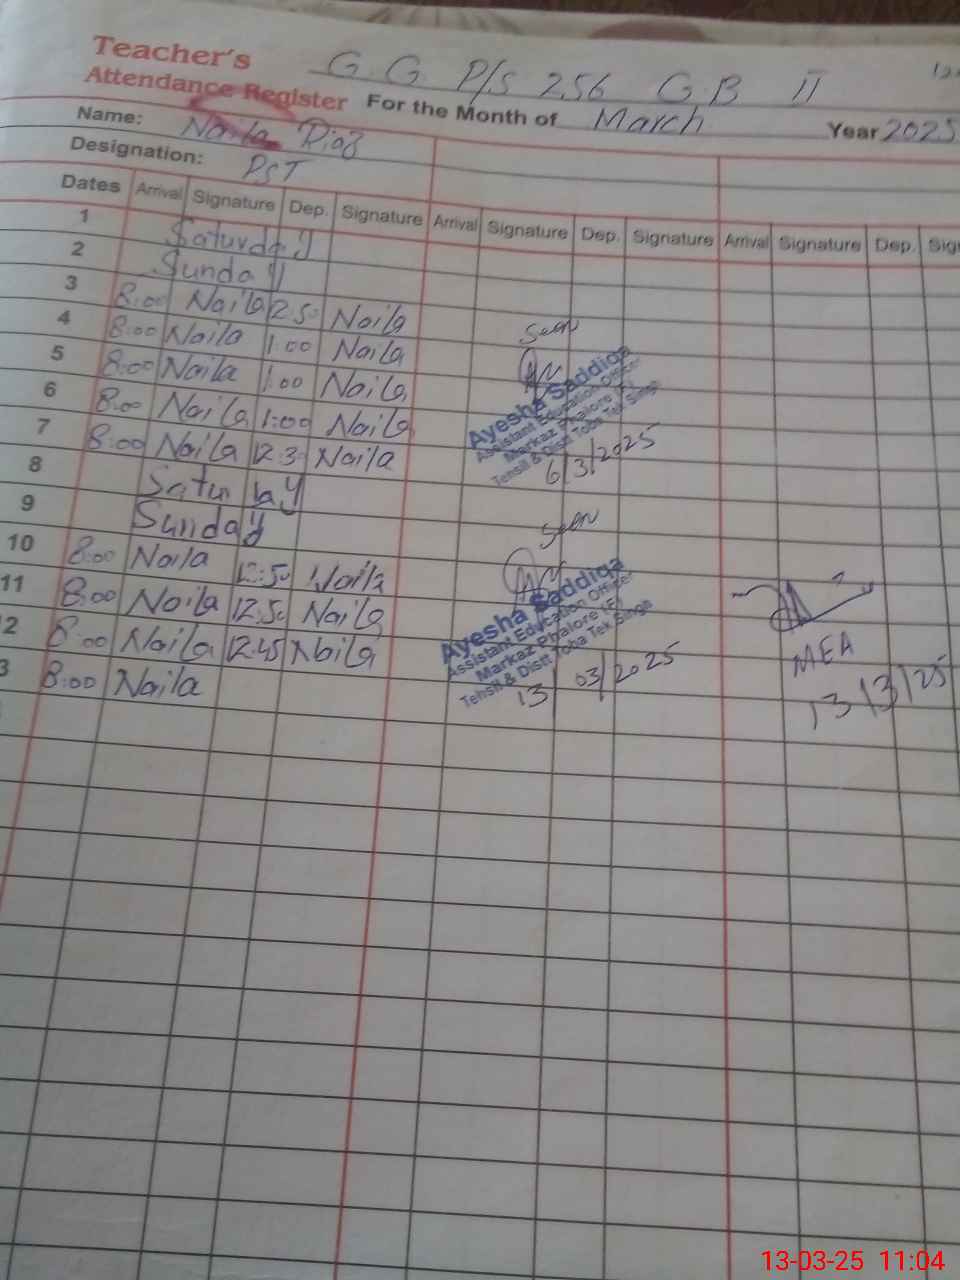 Teacher's
Attendance Register
G.G. P/S 256 G.B II
For the Month of March Year 2025
Name: Naila Riaz
Designation: PST
Dates Arrival Signature Dep. Signature Arrival Signature Dep. Signature Arrival Signature Dep.
1 Saturday
2 Sunday
3 8:00 Naila 12:50 Naila
4 8:00 Naila 1:00 Naila
5 8:00 Naila 1:00 Naila
6 8:00 Naila 1:00 Naila
7 8:00 Naila 12:3 Naila
8 Saturday
9 Sunday
10 8:00 Naila 12:50 Naila
11 8:00 Naila 12:50 Naila
2 8:00 Naila 12:45 Naila
3 8:00 Naila
Seen
Ayesha Saddiqa
Assistant Education Officer
Markaz Phalore (F)
Tehsil & Distt Toba Tek Singh
6/3/2025
Seen
Ayesha Saddiqa
Assistant Education Officer
Markaz Phalore (F)
Tehsil & Distt Toba Tek Singh
13/03/2025
MEA
13/3/25
13-03-25 11:04